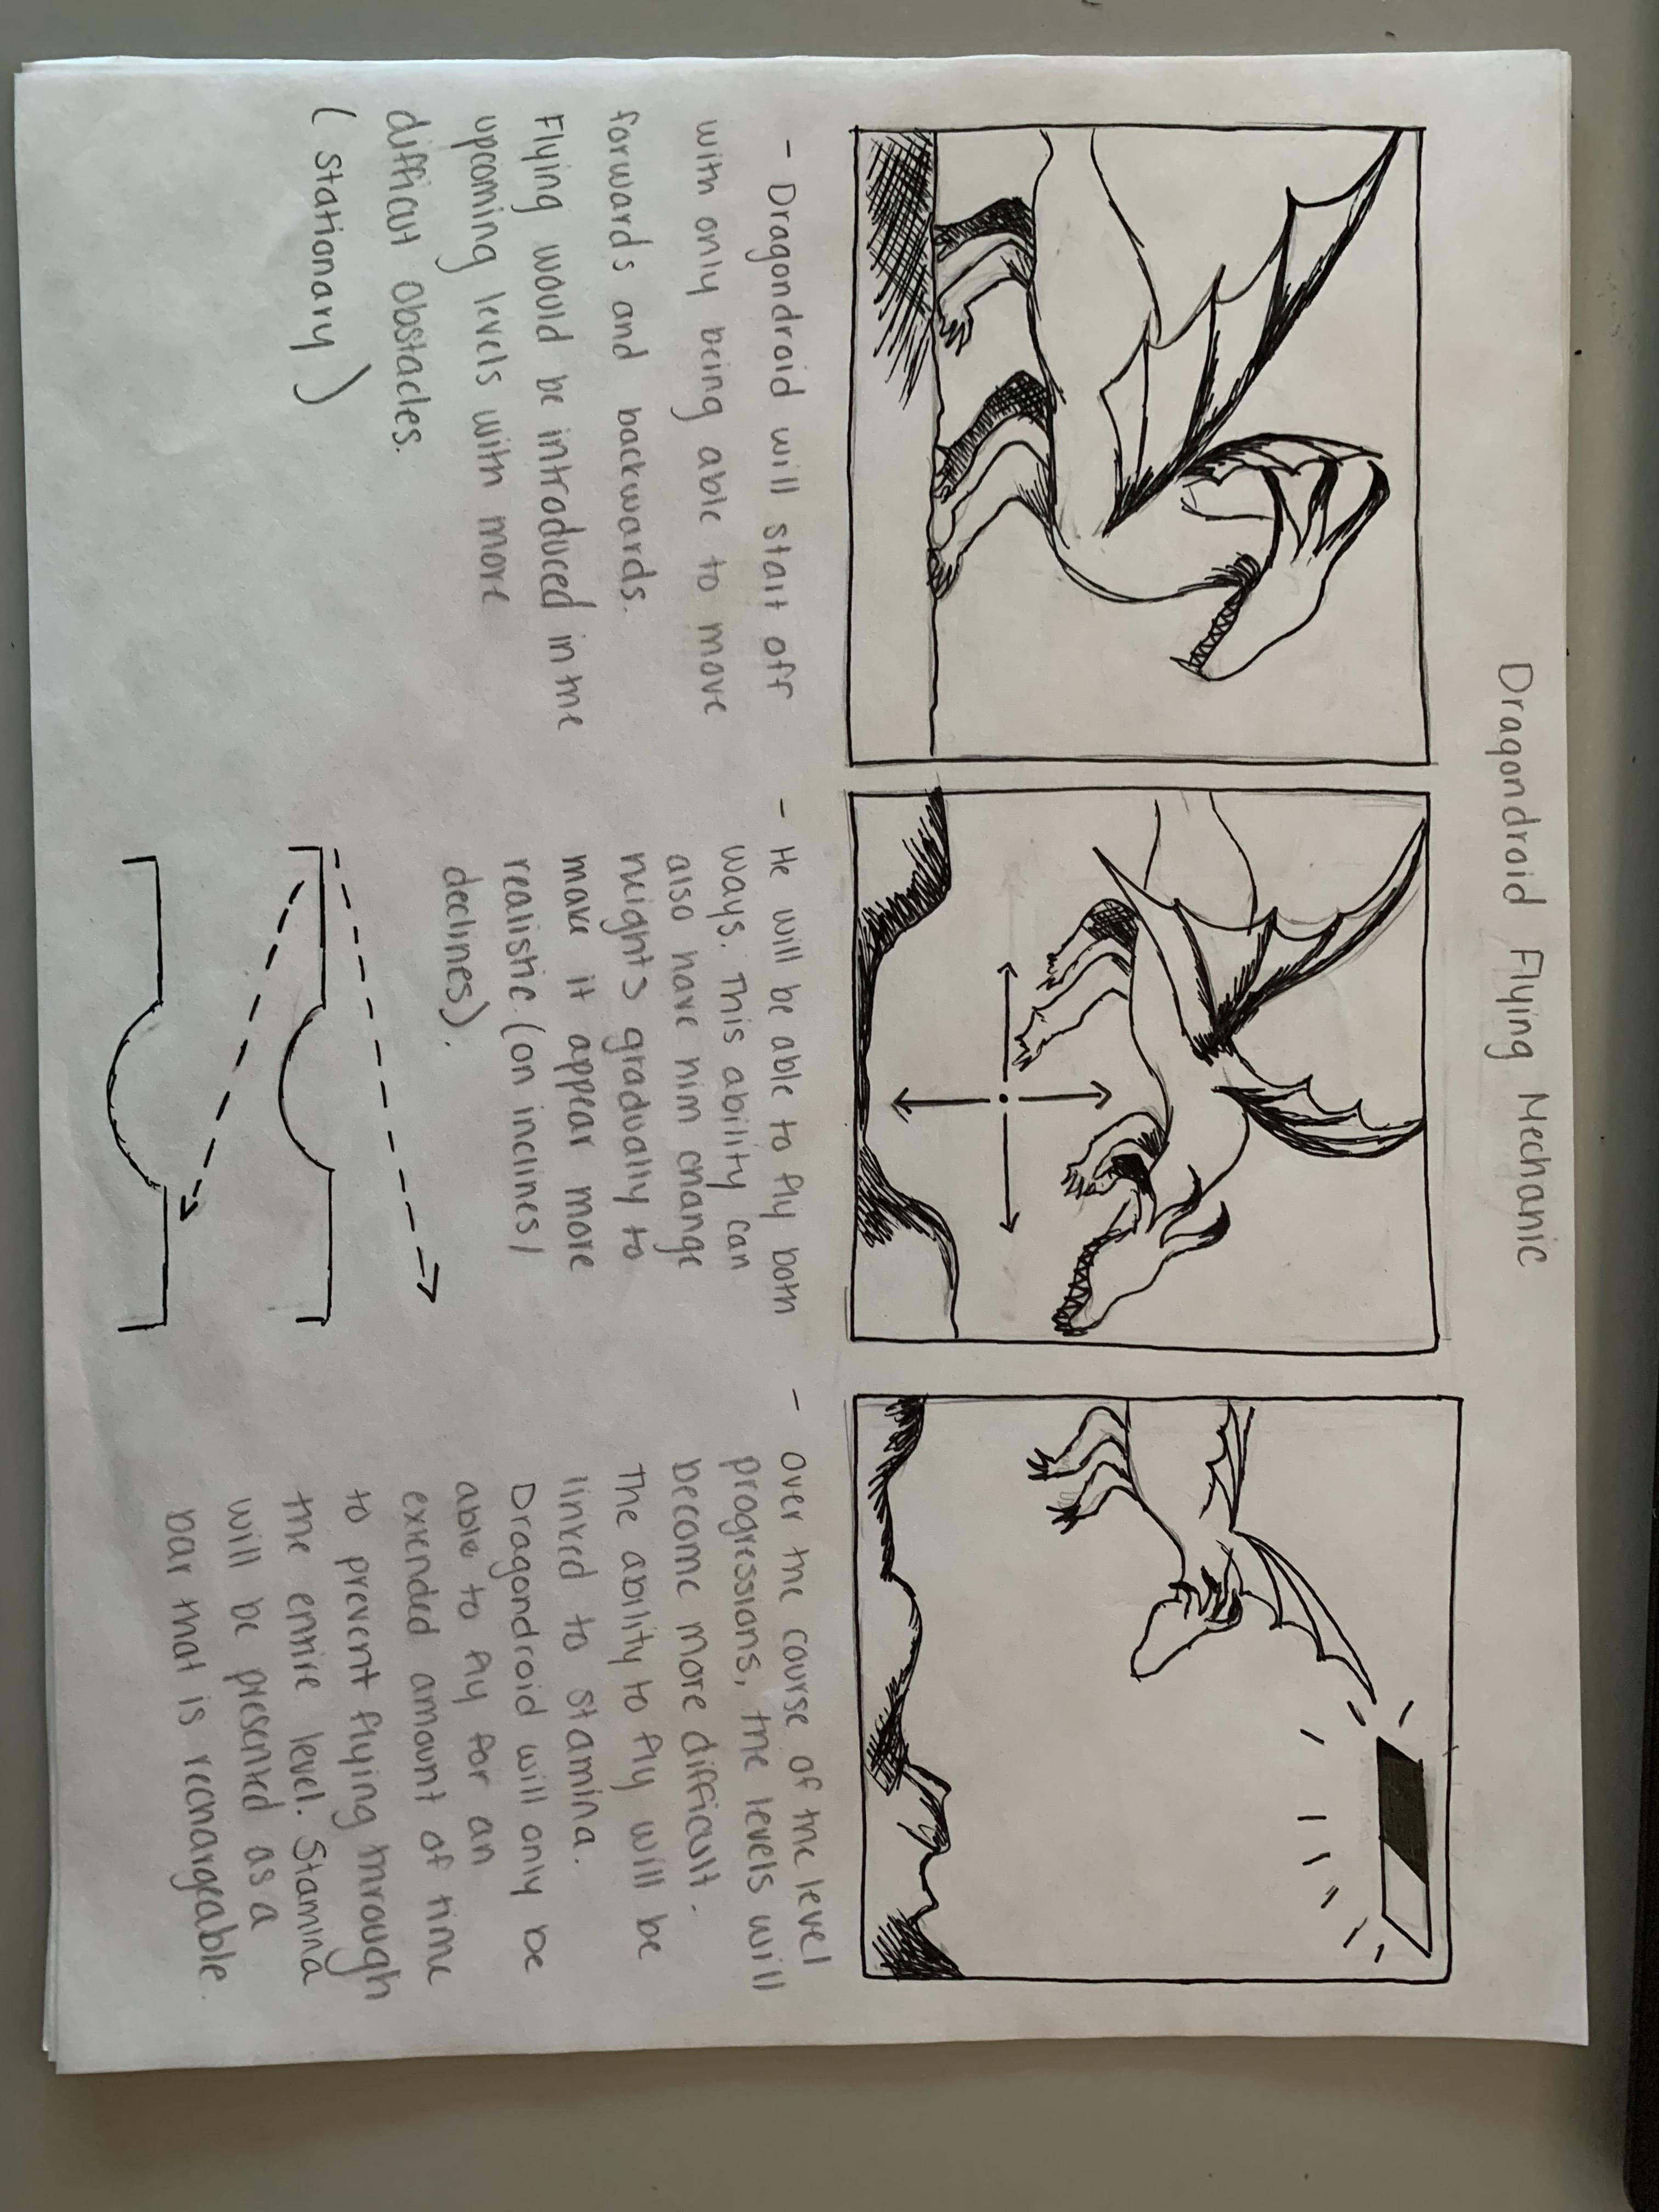 Dragondroid Flying Mechanic
- Dragondroid will start off
with only being able to move
forwards and backwards.
Flying would be introduced in the
upcoming levels with more
difficult obstacles.
(stationary)
- He will be able to fly both
ways. This ability can
also have him change
heights gradually to
make it appear more
realistic (on inclines/
declines).
- Over the course of the level
progressions, the levels will
become more difficult.
The ability to fly will be
linked to stamina.
Dragondroid will only be
able to fly for an
extended amount of time
to prevent flying through
the entire level. Stamina
will be presented as a
bar that is rechargeable.